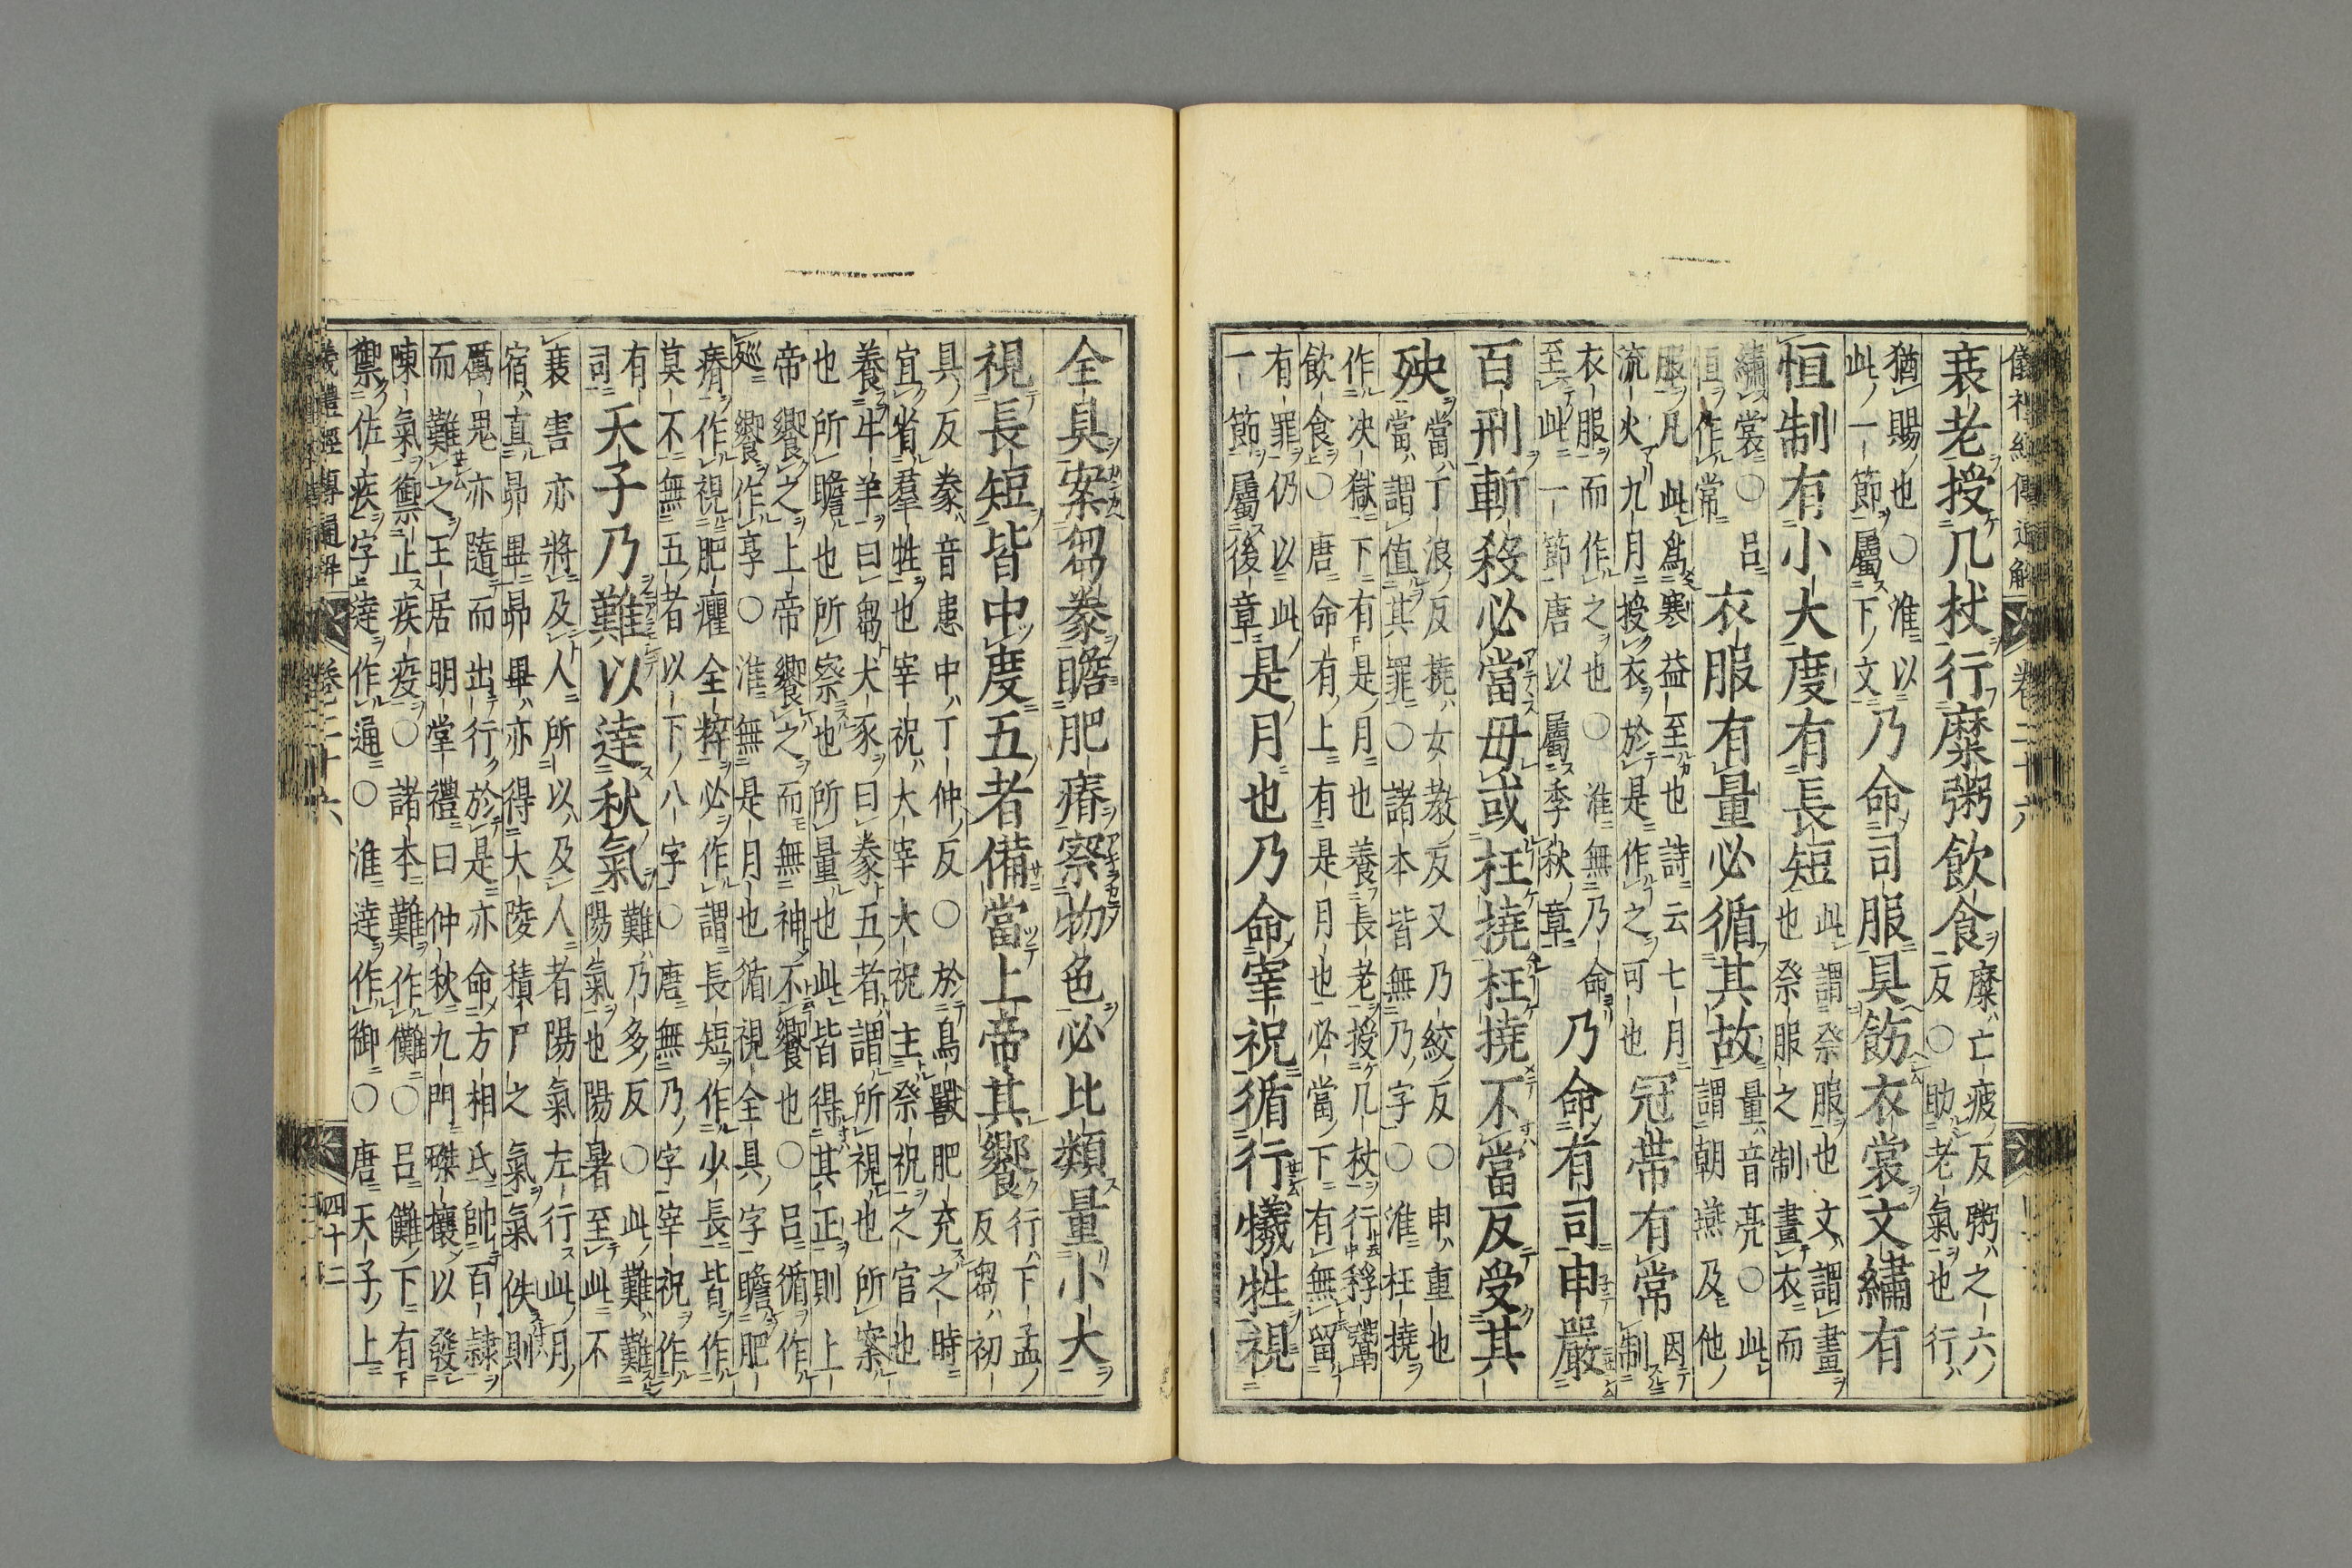 儀禮經傳通解　卷二十六
衰老授几杖行糜粥飲食
糜亡疲反粥之六
反○助老氣也行
猶賜也○淮以
此一節屬下文
乃命司服具飭衣裳文繡有
恒制有小大度有長短
此謂祭服也文謂畫
也祭服之制畫衣而
繡裳○呂
恒作常
衣服有量必循其故
量音亮○此
謂朝燕及他
服凡此爲寒益至也詩云七月
流火九月授衣於是作之可也
冠帶有常
因
制
衣服而作之也○淮無乃命
至此一節唐以屬季秋章
乃命有司申嚴
百刑斬殺必當毋或枉撓枉撓不當反受其
殃
當丁浪反撓女教反又乃絞反○申重也
當謂值其罪○諸本皆無乃字○淮枉撓
作决獄下有是月也養長老授几杖行稃鬻
飲食○唐命有上有是月也必當下有無留
有罪仍以此
一節屬後章
是月也乃命宰祝循行犧牲視
全具案芻豢瞻肥瘠察物色必比類量小大
視長短皆中度五者備當上帝其饗
行下孟
反芻初
具反豢音患中丁仲反○於鳥獸肥充之時
宜省羣牲也宰祝大宰大祝主祭祝之官也
養牛羊曰芻犬豕曰豢五者謂所視也所案
也所瞻也所察也所量也此皆得其正則上
帝饗之上帝饗之而無神不饗也○呂循作
巡饗作享○淮無是月也循視全具字瞻肥
瘠作視肥癯全粹必作謂長短作少長皆作
莫不無五者以下八字○唐無乃字宰祝作
有
司
天子乃難以逹秋氣
難乃多反○此難難
陽氣也陽暑至此不
衰害亦將及人所以及人者陽氣左行此月
宿直昴畢昴畢亦得大陵積尸之氣氣佚則
厲鬼亦隨而出行於是亦命方相氏帥百隷
而難之王居明堂禮曰仲秋九門磔攘以發
陳氣禦止疾疫○諸本難作儺○呂儺下有
禦佐疾字逹作通○淮逹作御○唐天子上
儀禮經傳通解　卷二十六　四十二